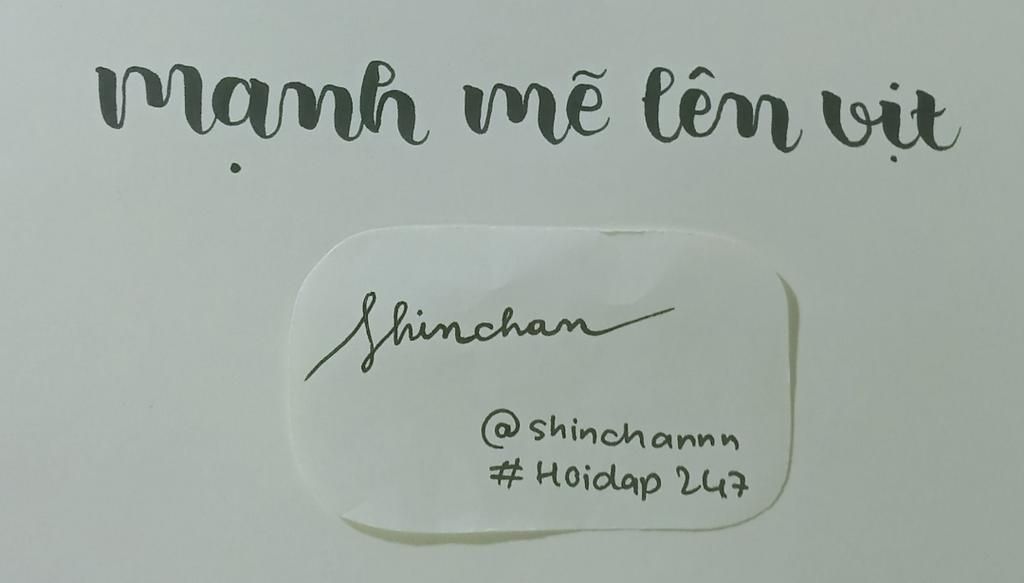 mạnh mẽ lên vịt
Shinchan
@shinchannn
# Hoidap 247